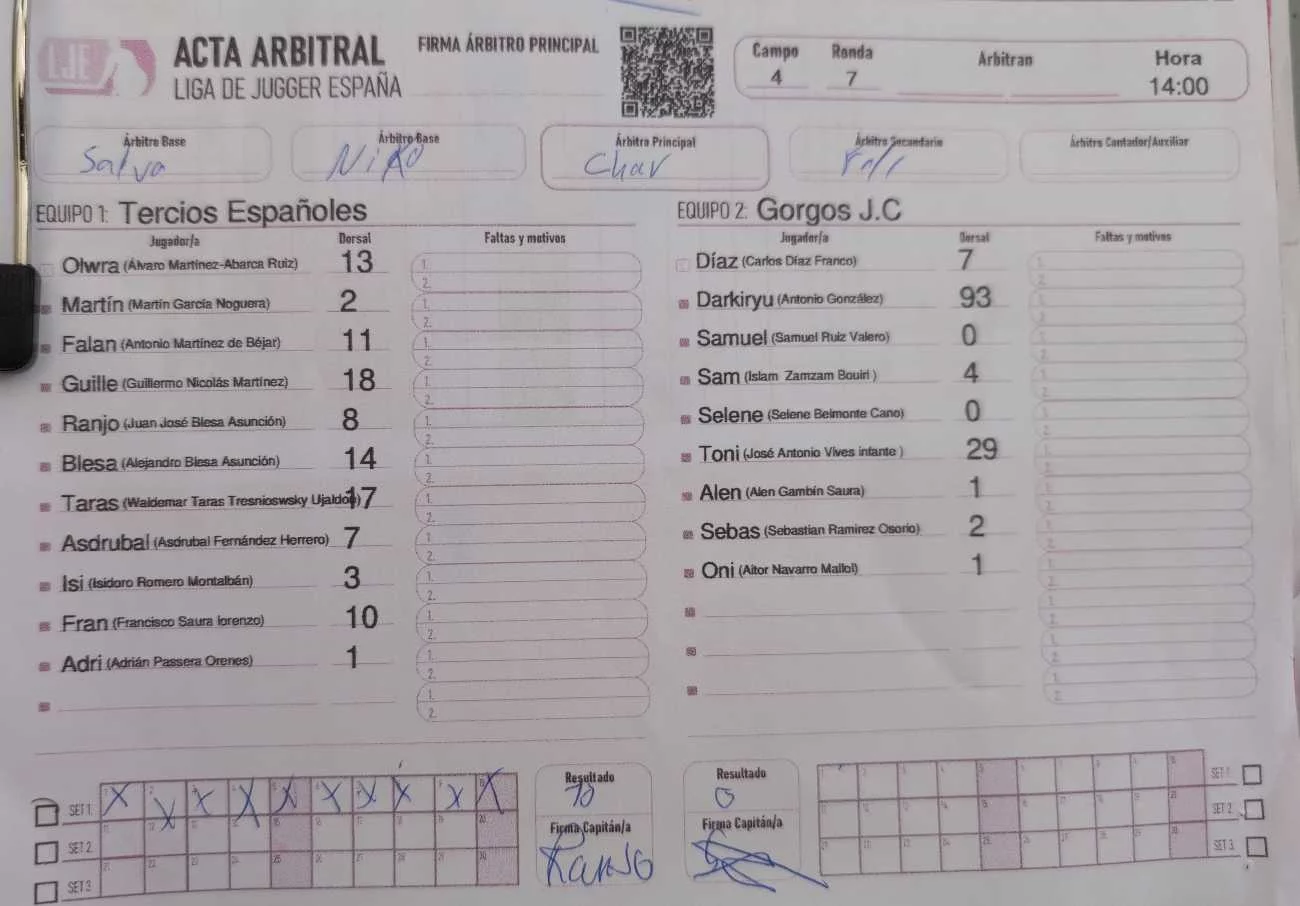 LJE
ACTA ARBITRAL
LIGA DE JUGGER ESPAÑA
FIRMA ÁRBITRO PRINCIPAL
Campo Ronda Arbitran Hora
4 7 14:00
Árbitro Base Árbitro Base Árbitro Principal Árbitro Secundario Árbitro Contador/Auxiliar
Salva Niko Chav
EQUIPO 1: Tercios Españoles
Jugador/a Dorsal Faltas y motivos
Olwra (Álvaro Martínez-Abarca Ruiz) 13 1. 2.
Martín (Martín García Noguera) 2 1. 2.
Falan (Antonio Martínez de Béjar) 11 1. 2.
Guille (Guillermo Nicolás Martínez) 18 1. 2.
Ranjo (Juan José Blesa Asunción) 8 1. 2.
Blesa (Alejandro Blesa Asunción) 14 1. 2.
Taras (Waldemar Taras Tresniowsky Ujaldon) 17 1. 2.
Asdrubal (Asdrubal Fernández Herrero) 7 1. 2.
Isi (Isidoro Romero Montalbán) 3 1. 2.
Fran (Francisco Saura lorenzo) 10 1. 2.
Adri (Adrián Passera Orenes) 1 1. 2.
1. 2.
EQUIPO 2: Gorgos J.C
Jugador/a Dorsal Faltas y motivos
Díaz (Carlos Díaz Franco) 7 1. 2.
Darkiryu (Antonio González) 93 1. 2.
Samuel (Samuel Ruiz Valero) 0 1. 2.
Sam (Islam Zamzam Bouiri ) 4 1. 2.
Selene (Selene Belmonte Cano) 0 1. 2.
Toni (José Antonio Vives infante ) 29 1. 2.
Alen (Alen Gambín Saura) 1 1. 2.
Sebas (Sebastian Ramirez Osorio) 2 1. 2.
Oni (Aitor Navarro Mallol) 1 1. 2.
1. 2.
1. 2.
1. 2.
SET 1. X X X X X X X X X X
SET 2.
SET 3.
Resultado
10
Firma Capitán/a
Ranjo
Resultado
0
Firma Capitán/a
SET 1.
SET 2.
SET 3.